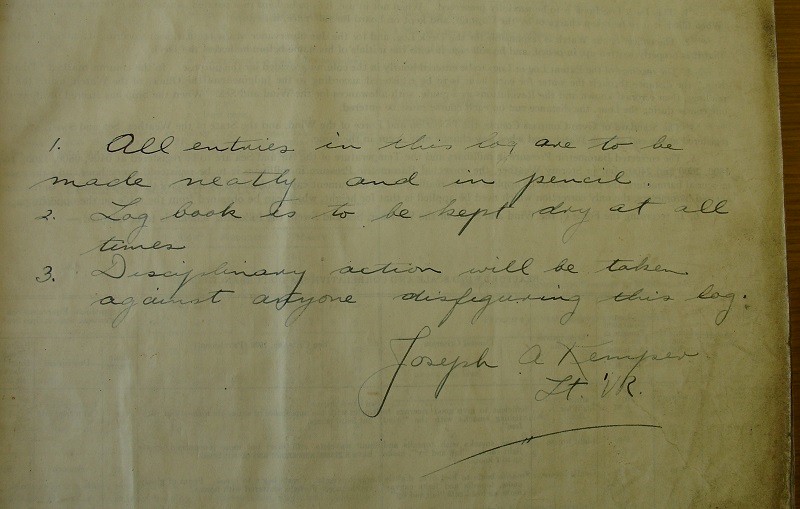 1. All entries in this log are to be
made neatly and in pencil.
2. Log book is to be kept dry at all
times
3. Disciplinary action will be taken
against anyone disfiguring this log.
Joseph A Kemper
Lt. VR.